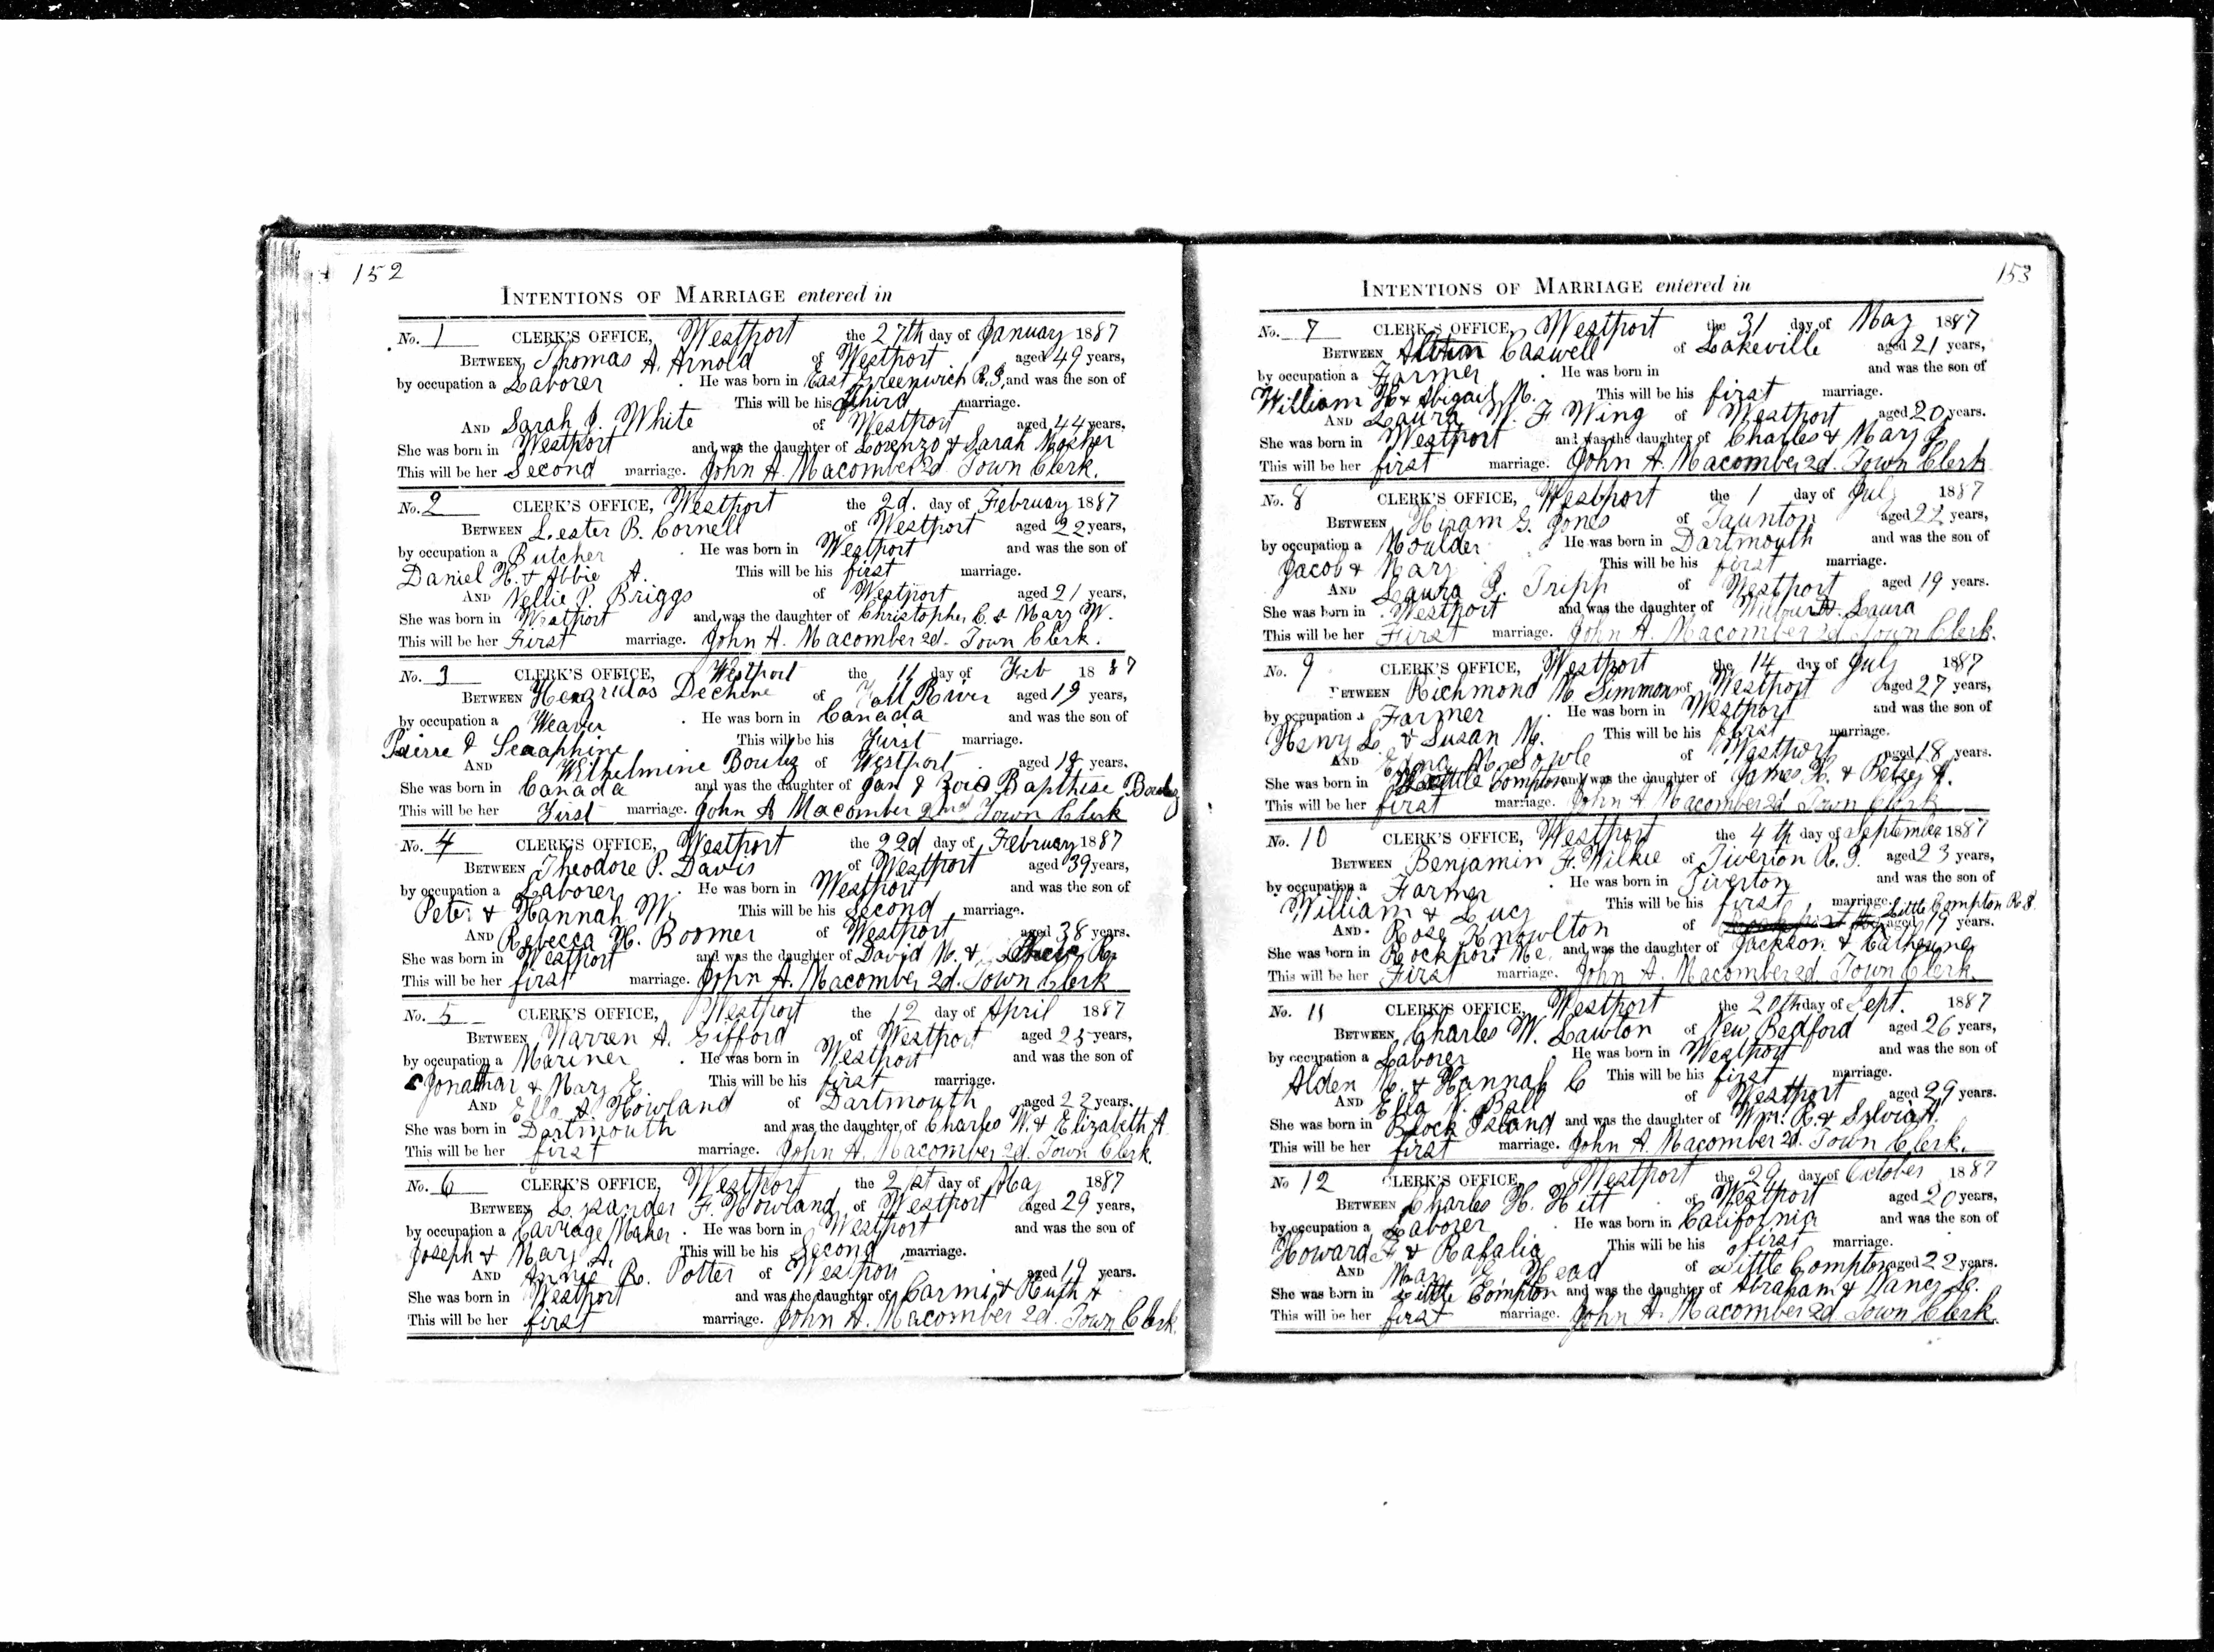 152
INTENTIONS OF MARRIAGE entered in
No. 1 CLERK'S OFFICE, Westport the 27th day of January 1887
BETWEEN Thomas A. Arnold of Westport aged 49 years,
by occupation a Laborer . He was born in East Greenwich R.I, and was the son of
This will be his third marriage.
AND Sarah J. White of Westport aged 44 years.
She was born in Westport and was the daughter of Lorenzo & Sarah Mosher
This will be her Second marriage. John A. Macomber 2d. Town Clerk.
No. 2 CLERK'S OFFICE, Westport the 2d. day of February 1887
BETWEEN Lester B. Cornell of Westport aged 22 years,
by occupation a Butcher . He was born in Westport and was the son of
Daniel H. & Abbie A. This will be his first marriage.
AND Nellie P. Briggs of Westport aged 21 years,
She was born in Westport and was the daughter of Christopher C. & Mary W.
This will be her First marriage. John A. Macomber 2d. Town Clerk.
No. 3 CLERK'S OFFICE, Westport the 11 day of Feb 1887
BETWEEN Dechene of Fall River aged 19 years,
by occupation a Weaver . He was born in Canada and was the son of
Pierre & This will be his First marriage.
AND Wilhelmine of Westport aged years.
She was born in Canada and was the daughter of Jan & Bapthise
This will be her First marriage. John A Macomber 2nd Town Clerk
No. 4 CLERK'S OFFICE, Westport the 22d day of February 1887
BETWEEN Theodore P. Davis of Westport aged 39 years,
by occupation a Laborer . He was born in Westport and was the son of
Peter & Hannah W. This will be his Second marriage.
AND Rebecca H. Boomer of Westport aged 38 years.
She was born in Westport and was the daughter of David M. & R.
This will be her first marriage. John A. Macomber 2d. Town Clerk
No. 5 CLERK'S OFFICE, Westport the 12 day of April 1887
BETWEEN Warren A. Gifford of Westport aged 25 years,
by occupation a Mariner . He was born in Westport and was the son of
Jonathan & Mary E. This will be his first marriage.
AND Ella A. Howland of Dartmouth aged 22 years.
She was born in Dartmouth and was the daughter of Charles W. & Elizabeth A
This will be her first marriage. John A. Macomber 2d. Town Clerk.
No. 6 CLERK'S OFFICE, Westport the 21st day of May 1887
BETWEEN Lysander F. Howland of Westport aged 29 years,
by occupation a Carriage Maker . He was born in Westport and was the son of
Joseph & Mary A. This will be his Second marriage.
AND Annie R. Potter of Westport aged 19 years.
She was born in Westport and was the daughter of Carmi & Ruth
This will be her first marriage. John A. Macomber 2d. Town Clerk.
153
INTENTIONS OF MARRIAGE entered in
No. 7 CLERK'S OFFICE, Westport the 31 day of May 1887
BETWEEN Caswell of Lakeville aged 21 years,
by occupation a Farmer . He was born in and was the son of
William H & Abigail M. This will be his first marriage.
AND Laura W. F Wing of Westport aged 20 years.
She was born in Westport and was the daughter of Charles & Mary
This will be her first marriage. John A. Macomber 2d. Town Clerk
No. 8 CLERK'S OFFICE, Westport the 1 day of July 1887
BETWEEN Hiram G. Jones of Taunton aged 22 years,
by occupation a Moulder . He was born in Dartmouth and was the son of
Jacob & Mary This will be his first marriage.
AND Laura Tripp of Westport aged 19 years.
She was born in Westport and was the daughter of Laura
This will be her First marriage. John A. Macomber 2d Town Clerk.
No. 9 CLERK'S OFFICE, Westport the 14 day of July 1887
BETWEEN Richmond Simmons of Westport aged 27 years,
by occupation a Farmer . He was born in Westport and was the son of
Henry L. & Susan M. This will be his first marriage.
AND Edna M. Sowle of Westport aged 18 years.
She was born in Little Compton and was the daughter of James H. & Betsey A.
This will be her first marriage. John A. Macomber 2d Town Clerk
No. 10 CLERK'S OFFICE, Westport the 4th day of September 1887
BETWEEN Benjamin F. Wilkie of Tiverton R. I. aged 23 years,
by occupation a Farmer . He was born in Tiverton and was the son of
William & Lucy This will be his first marriage.
AND Rose Knowlton of Little Compton R.I. aged 19 years.
She was born in Rockport Me. and was the daughter of Jackson & Catherine
This will be her First marriage. John A. Macomber 2d. Town Clerk.
No. 11 CLERK'S OFFICE, Westport the 20th day of Sept. 1887
BETWEEN Charles W. Lawton of New Bedford aged 26 years,
by occupation a Laborer . He was born in Westport and was the son of
Alden & Hannah C This will be his first marriage.
AND Ella N. Ball of Westport aged 29 years.
She was born in Block Island and was the daughter of Wm. R. & Sylvia A.
This will be her first marriage. John A. Macomber 2d. Town Clerk.
No 12 CLERK'S OFFICE, Westport the 29 day of October 1887
BETWEEN Charles H. Hitt of Westport aged 20 years,
by occupation a Laborer . He was born in California and was the son of
Howard & Rafalia This will be his first marriage.
AND Mary E. Head of Little Compton aged 22 years.
She was born in Little Compton and was the daughter of Abraham & Nancy
This will be her first marriage. John A. Macomber 2d Town Clerk.